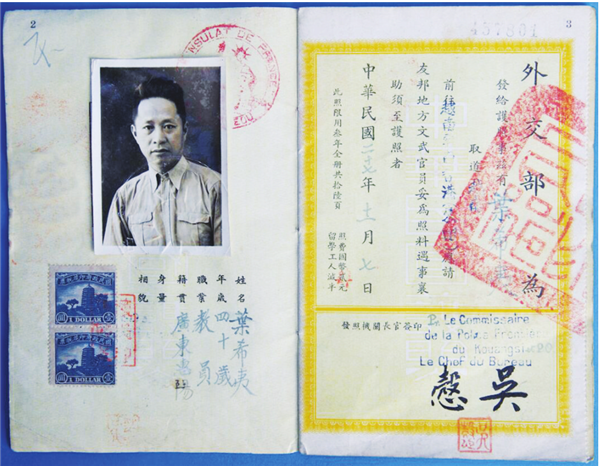 2
NSULAT DE FRANCE
姓名 葉希夷
年歲 四十歲
職業 教員
籍貫 廣東惠陽
身量
相貌
1 DOLLAR
1 DOLLAR
3
457801
外交部為
發給護照事茲有葉希夷
取道
前越南香港請
友邦地方文武官員妥為照料遇事襄
助須至護照者
中華民國 年 月七日
此照限用叁年全冊共拾陸頁
照費國幣元
留學工人減半
發照機關長官簽印
P. Le Commissaire
de la Police
du Kouangsi
Le Chef du Bureau
吳